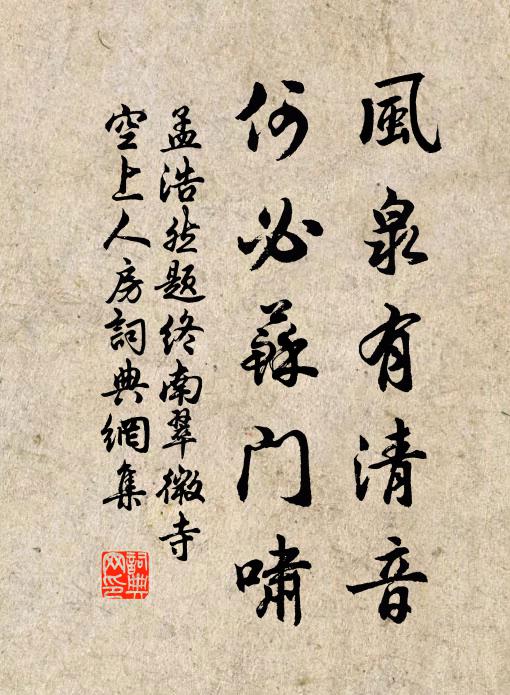 風泉有清音
何必蘇門嘯
孟浩然題終南翠微寺
空上人房詞典網集
詞典
网印